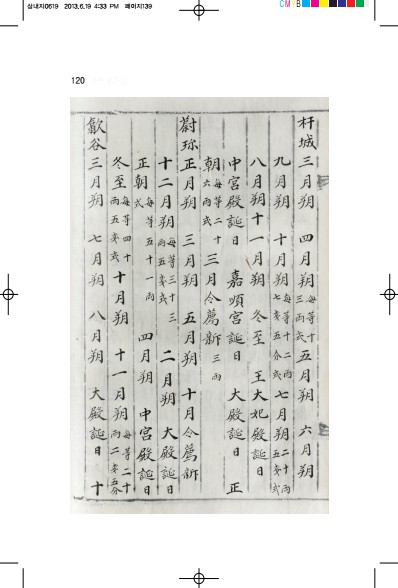 삼내지0619 2013.6.19 4:33 PM 페이지139
CM B
120
杆城三月朔 四月朔每等十三兩式五月朔 六月朔
九月朔 十月朔每等十二兩七戔五分式七月朔二十兩五戔式
八月朔十一月朔 冬至 王大妃殿誕日
中宮殿誕日 嘉順宮誕日 大殿誕日 正
朝每等二十六兩式三月令薦新三兩
蔚珍正月朔 三月朔 五月朔 十月令薦新
十二月朔每等三十三兩五戔式 二月朔 大殿誕日
正朝每等五十一兩式 四月朔 中宮殿誕日
冬至每等四十兩五戔式十月朔 十一月朔每等二十兩二戔五分
歙谷三月朔 七月朔 八月朔 大殿誕日 十